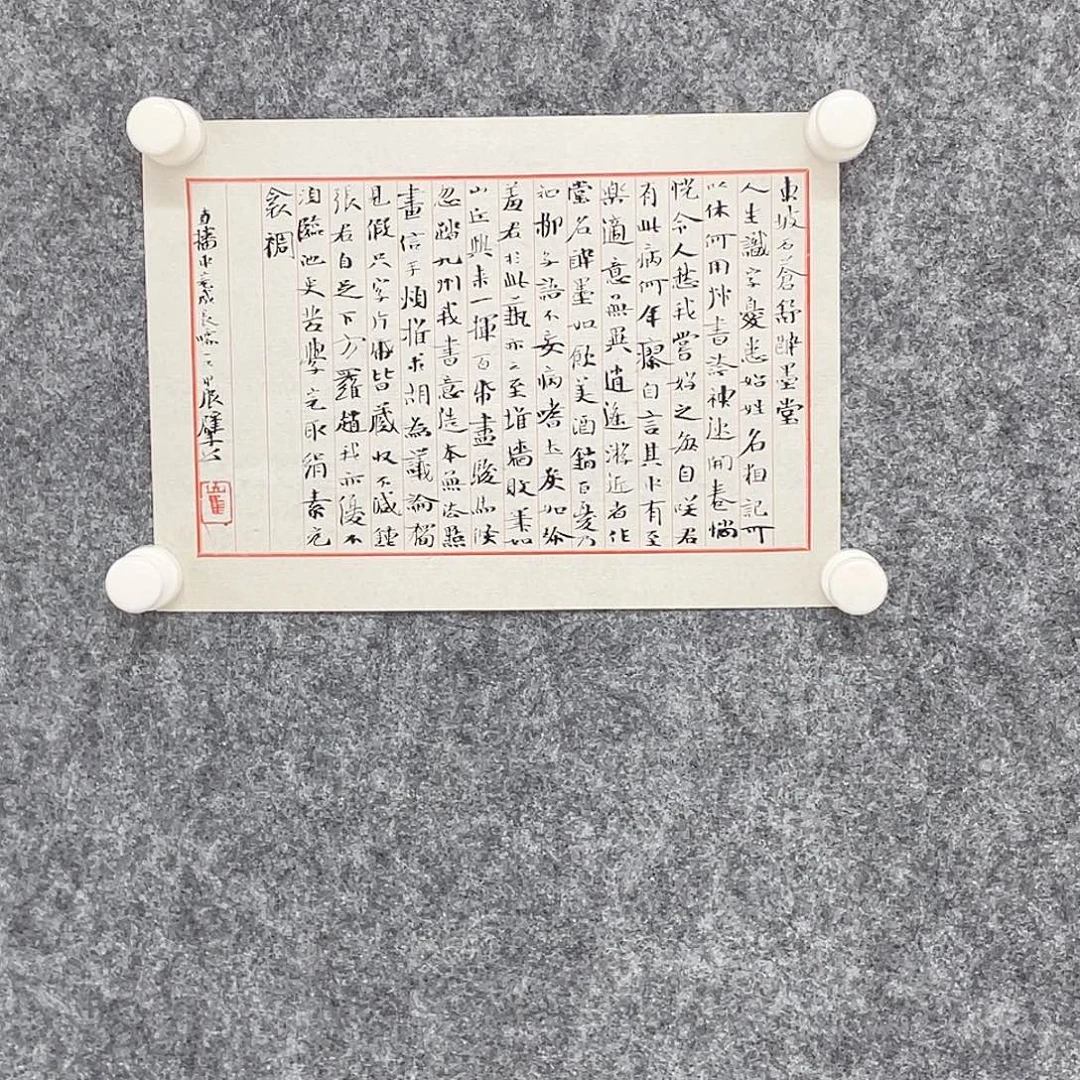 東坡石蒼舒醉墨堂
人生識字憂患始姓名粗記可
以休何用草書誇神速開卷惝
怳令人愁我嘗好之每自咲君
有此病何年瘳自言其中有至
樂適意無異逍遙游近者作
堂名醉墨如飲美酒銷百憂乃
知柳子語不妄病嗜土炭如珍
羞君於此藝亦云至堆牆敗筆如
山丘興來一揮百帋盡駿馬倏
忽踏九州我書意造本無法點
畫信手煩推求胡為議論獨
見假只字片帋皆藏收不減鍾
張君自足下方羅趙我亦優不
須臨池更苦學完取絹素充
衾裯